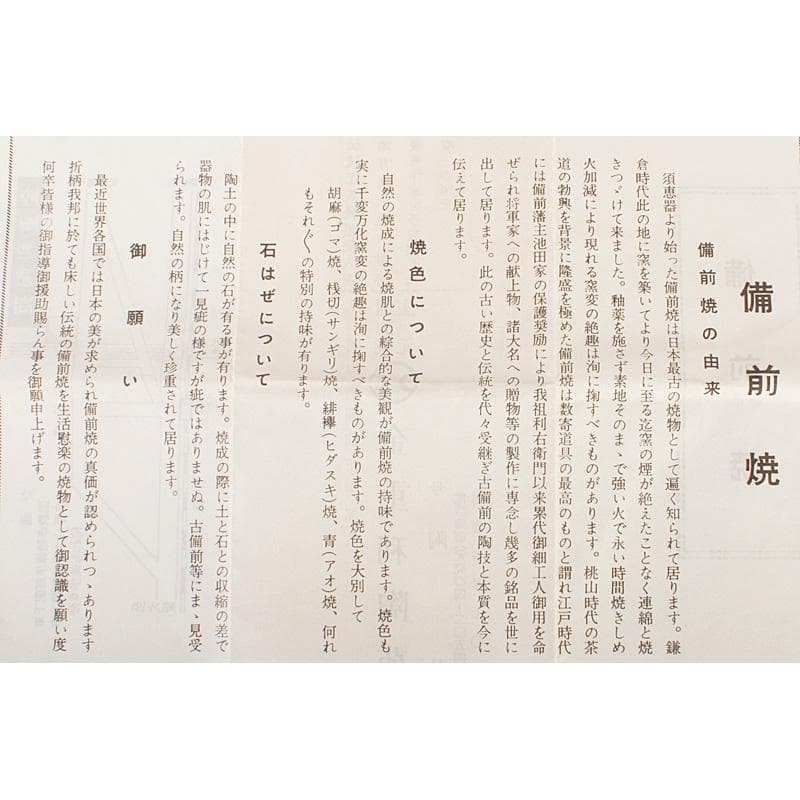 備前焼
備前焼の由来
須恵器より始った備前焼は日本最古の焼物として遍く知られて居ります。鎌
倉時代此の地に窯を築いてより今日に至る迄窯の煙が絶えたことなく連綿と焼
きつゞけて来ました。釉薬を施さず素地そのまゝで強い火で永い時間焼きしめ
火加減により現れる窯変の絶趣は洵に掬すべきものがあります。桃山時代の茶
道の勃興を背景に隆盛を極めた備前焼は数寄道具の最高のものと謂れ江戸時代
には備前藩主池田家の保護奨励により我祖利右衛門以来累代御細工人御用を命
ぜられ将軍家への献上物、諸大名への贈物等の製作に専念し幾多の銘品を世に
出して居ります。此の古い歴史と伝統を代々受継ぎ古備前の陶技と本質を今に
伝えて居ります。
焼色について
自然の焼成による焼肌との綜合的な美観が備前焼の持味であります。焼色も
実に千変万化窯変の絶趣は洵に掬すべきものがあります。焼色を大別して
胡麻(ゴマ)焼、桟切(サンギリ)焼、緋襷(ヒダスキ)焼、青(アオ)焼、何れ
もそれ〲の特別の持味が有ります。
石はぜについて
陶土の中に自然の石が有る事が有ります。焼成の際に土と石との収縮の差で
器物の肌にはじけて一見疵の様ですが疵ではありませぬ。古備前等にまゝ見受
られます。自然の柄になり美しく珍重されて居ります。
御願い
最近世界各国では日本の美が求められ備前焼の真価が認められつゝあります
折柄我邦に於ても床しい伝統の備前焼を生活慰楽の焼物として御認識を願い度
何卒皆様の御指導御援助賜らん事を御願申上げます。